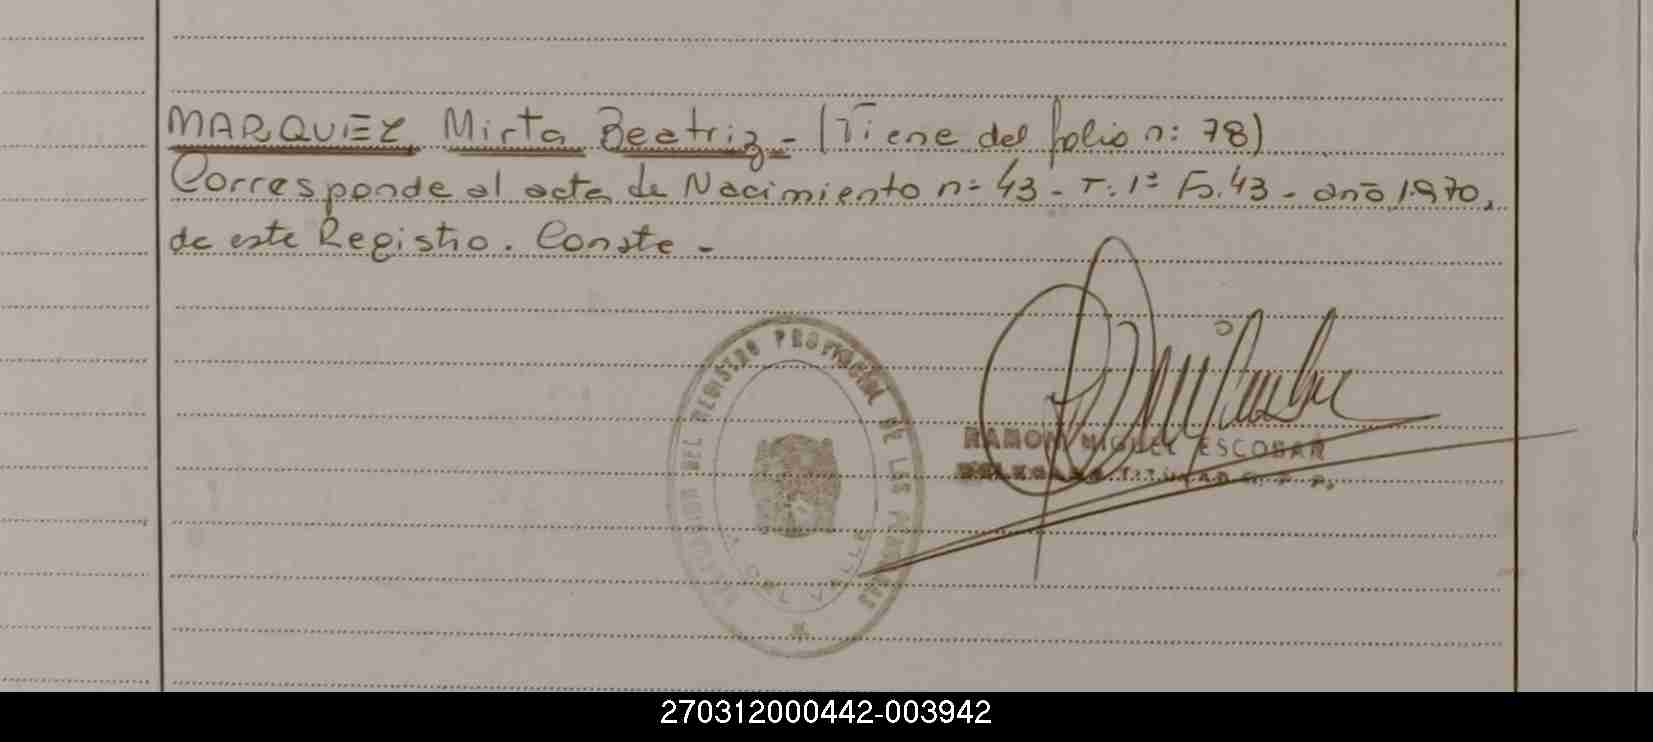 MARQUEZ Mirta Beatriz - (Viene del folio n: 78)
Corresponde al acta de Nacimiento n= 43 - T: 1ª Fº. 43 - año 1.970,
de este Registro. Conste -
DEL REGISTRO PROVINCIAL DE LAS PERSONAS
DEL VALLE
RAMON MIGUEL ESCOBAR
DELEGADO TITULAR R. P. P.
270312000442-003942